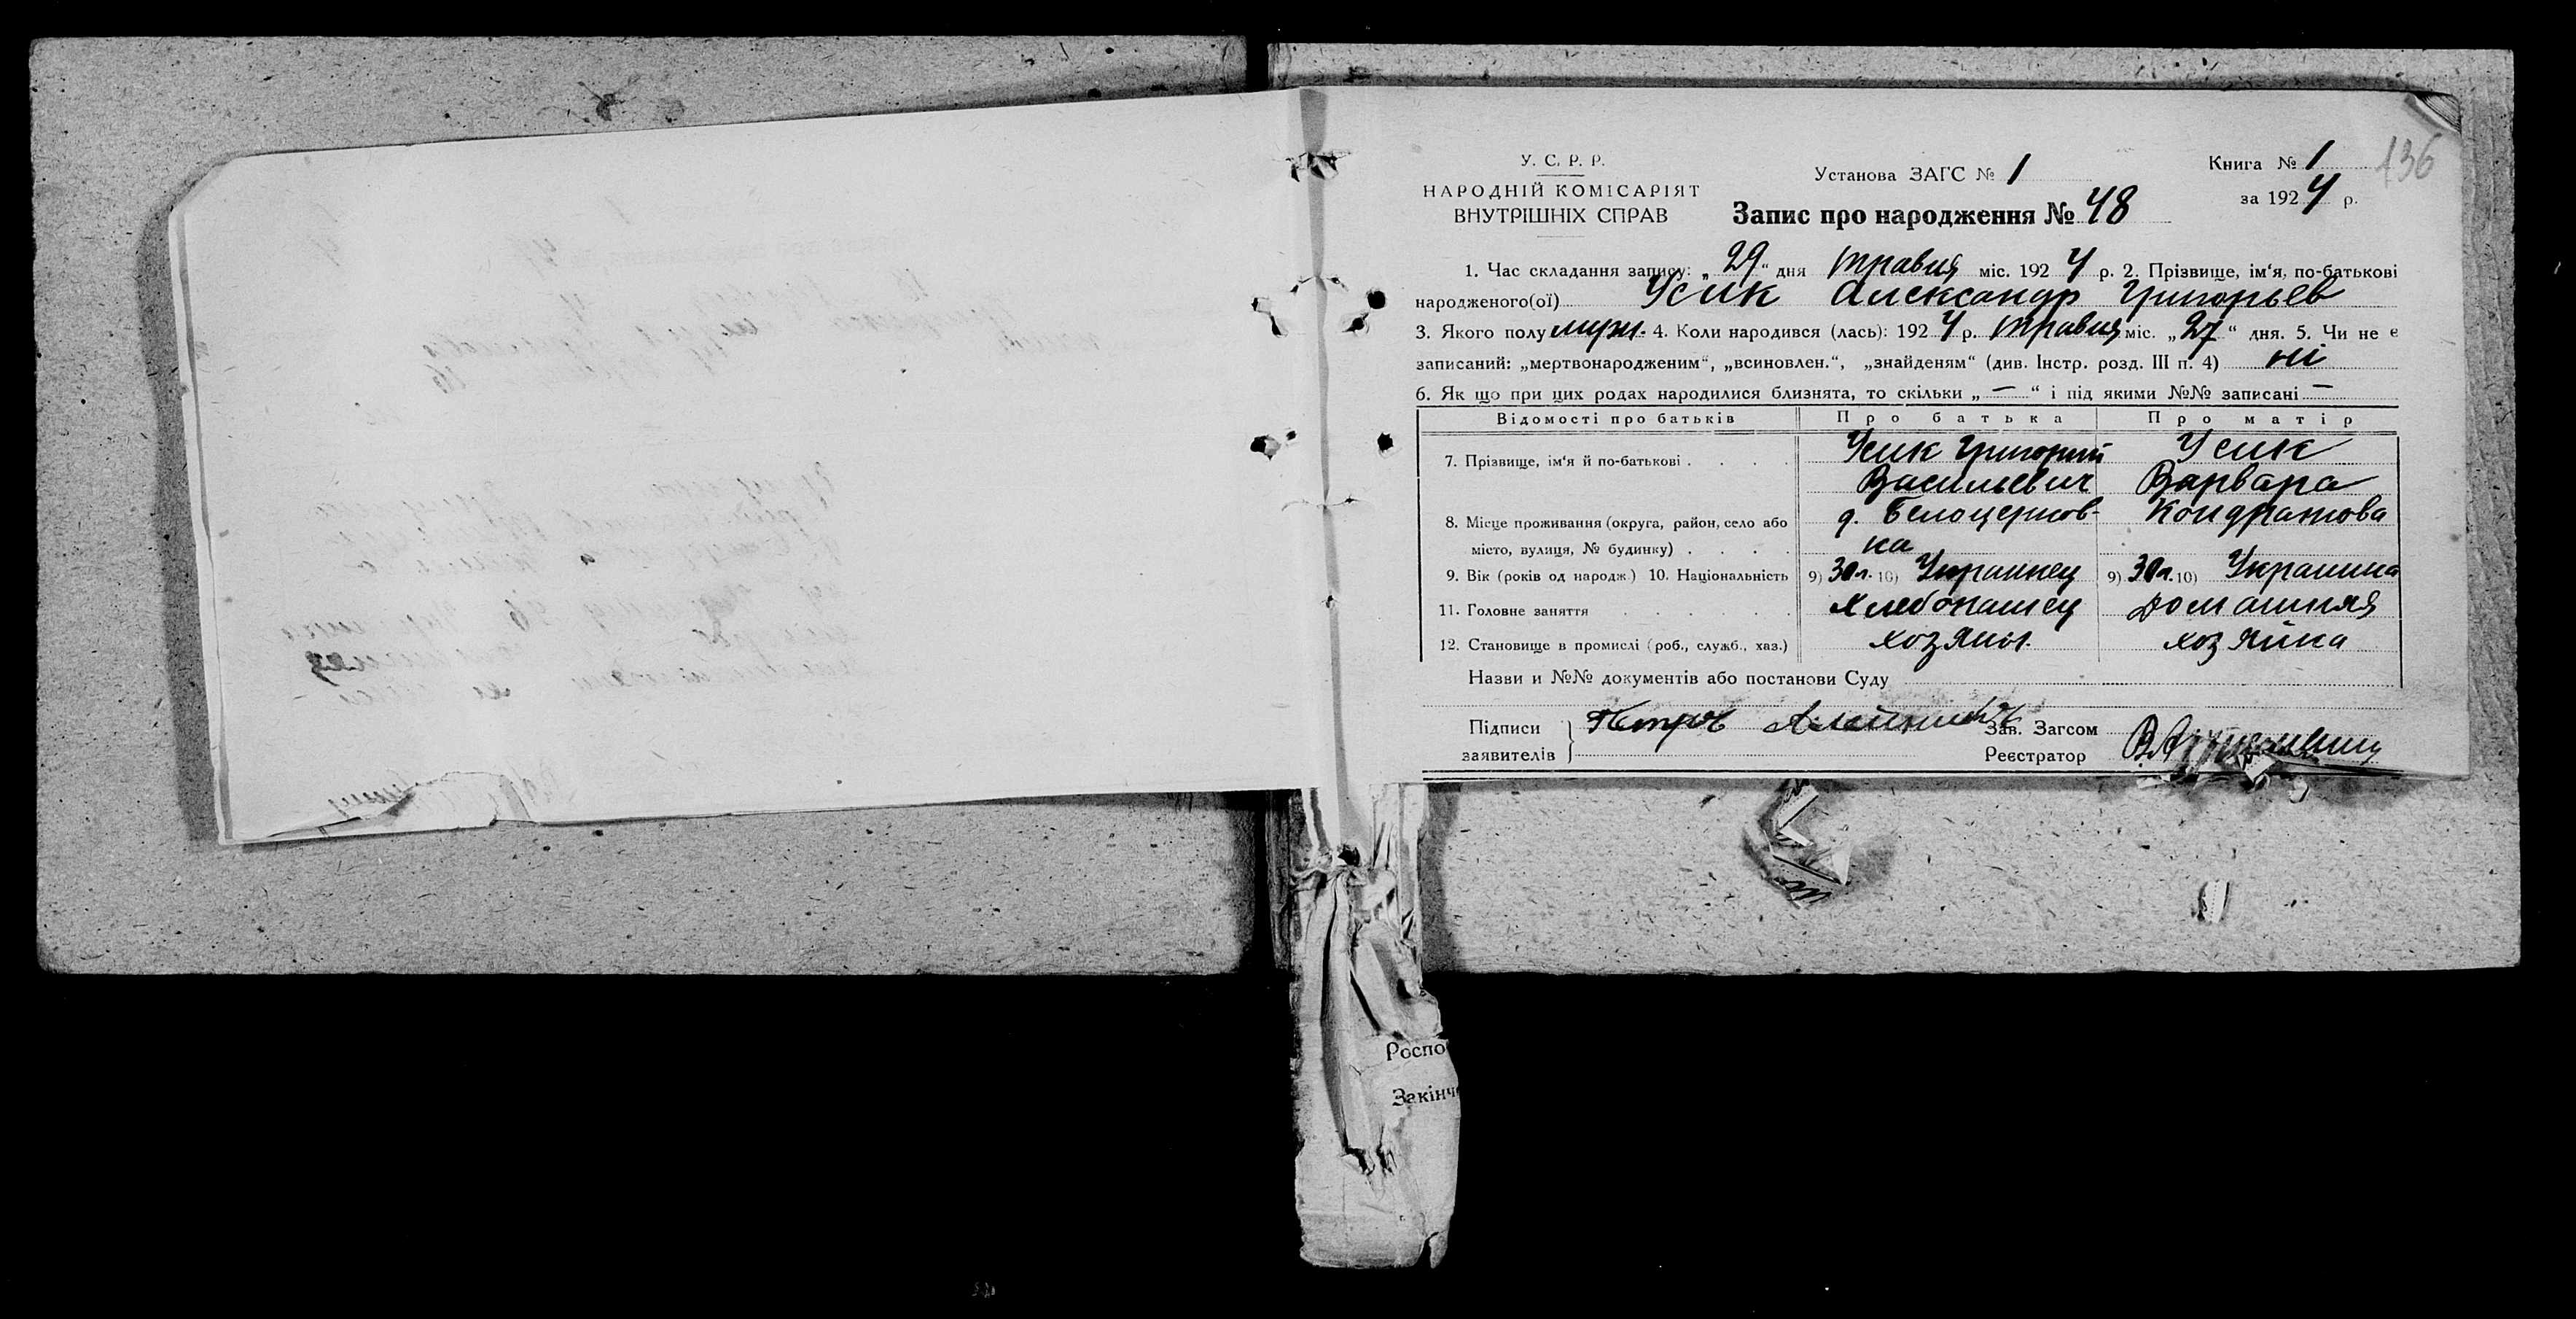 У. С. Р. Р.
НАРОДНІЙ КОМІСАРІЯТ
ВНУТРІШНІХ СПРАВ
Установа ЗАГС № 1
Запис про народження № 48
Книга № 1
за 1924 р.
136
1. Час складання запису: „29“ дня травня міс. 1924 р. 2. Прізвище, ім‘я, по-батькові
народженого(ої) Усик Александр Григорьев
3. Якого полу муж. 4. Коли народився (лась): 1924 р. травня міс. „27“ дня. 5. Чи не є
записаний: „мертвонародженим“, „всиновлен.“, „знайденям“ (див. Інстр. розд. III п. 4) ні
6. Як що при цих родах народилися близнята, то скільки „—“ і під якими №№ записані —
Відомості про батьків Про батька Про матір
7. Прізвище, ім‘я й по-батькові . . . . Усик Григорий Усик
Васильевич Варвара
8. Місце проживання (округа, район, село або д. Белоцерков- Кондратова
місто, вулиця, № будинку) . . . . ка
9. Вік (років од народж.) 10. Національність 9) 30 л. 10) Украинец 9) 30 л. 10) Украинка
11. Головне заняття . . . . . Хлебопашец домашняя
12. Становище в промислі (роб., служб., хаз.) хозяин. хозяйка
Назви и №№ документів або постанови Суду
Підписи
заявителів
Петров
Зав. Загсом
Реєстратор
Роспо
Закінч